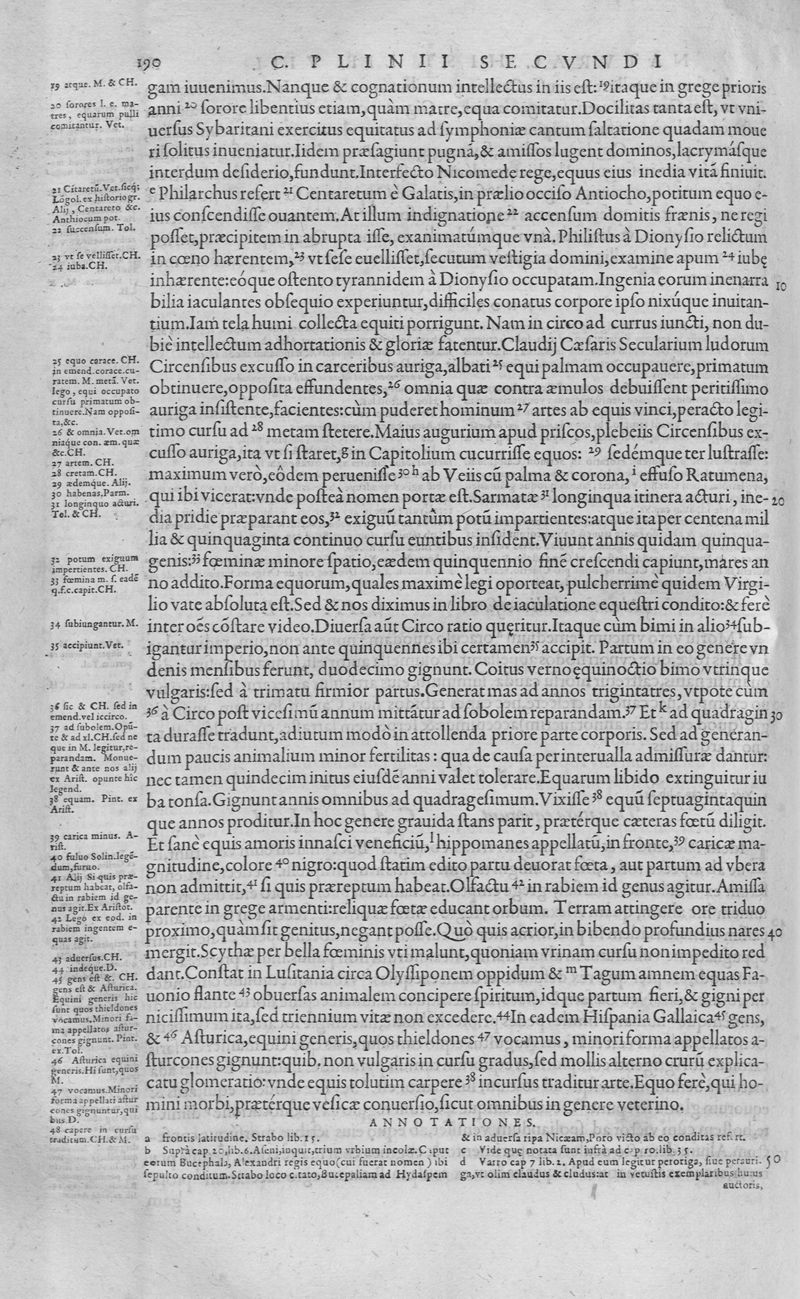 190 C. PLINII SECVNDI
gam iuuenimus.Nanque & cognationum intellectus in iis est:¹⁹itaque in grege prioris
anni ²⁰ sorore libentius etiam,quàm matre,equa comitatur.Docilitas tanta est, vt vni-
uersus Sybaritani exercitus equitatus ad symphoniæ cantum saltatione quadam moue
ri solitus inueniatur.Iidem præsagiunt pugnã,& amissos lugent dominos,lacrymásque
interdum desiderio,fundunt.Interfecto Nicomede rege,equus eius inedia vitã finiuit.
ᵉ Philarchus refert ²¹ Centaretum è Galatis,in prælio occiso Antiocho,potitum equo e-
ius conscendisse ouantem.At illum indignatione ²² accensum domitis frænis, ne regi
posset,præcipitem in abrupta isse, exanimatúmque vnà. Philistus à Dionysio relictum
in cœno hærentem,²³ vt sese euellisset,secutum vestigia domini,examine apum ²⁴ iubę
inhærente:eóque ostento tyrannidem à Dionysio occupatam.Ingenia eorum inenarra 10
bilia iaculantes obsequio experiuntur,difficiles conatus corpore ipso nixúque inuitan-
tium.Iam tela humi collecta equiti porrigunt. Nam in circo ad currus iuncti, non du-
biè intellectum adhortationis & gloriæ fatentur.Claudij Cæsaris Secularium ludorum
Circensibus excusso in carceribus auriga,albati ²⁵ equi palmam occupauere,primatum
obtinuere,opposita effundentes,²⁶ omnia quæ contra æmulos debuissent peritissimo
auriga insistente,facientes:cùm puderet hominum ²⁷ artes ab equis vinci,peracto legi-
timo cursu ad ²⁸ metam stetere.Maius augurium apud priscos,plebeiis Circensibus ex-
cusso auriga,ita vt si staret,ᵍ in Capitolium cucurrisse equos: ²⁹ sedémque ter lustrasse:
maximum verò,eôdem peruenisse ³⁰ ʰ ab Veiis cũ palma & corona, ⁱ effuso Ratumena,
qui ibi vicerat:vnde posteà nomen portæ est.Sarmatæ ³¹ longinqua itinera acturi, ine- 20
dia pridie præparant eos,³² exiguũ tantùm potũ impartientes:atque ita per centena mil
lia & quinquaginta continuo cursu euntibus insident.Viuunt annis quidam quinqua-
genis:³³ fœminæ minore spatio,eædem quinquennio finẽ crescendi capiunt,mares an
no addito.Forma equorum,quales maximè legi oporteat, pulcherrimè quidem Virgi-
lio vate absoluta est.Sed & nos diximus in libro de iaculatione equestri condito:& ferè
inter oẽs cõstare video.Diuersa aũt Circo ratio quęritur.Itaque cùm bimi in alio ³⁴ sub-
igantur imperio,non ante quinquennes ibi certamen ³⁵ accipit. Partum in eo genere vn
denis mensibus ferunt, duodecimo gignunt. Coitus verno ęquinoctio bimo vtrinque
vulgaris:sed à trimatu firmior partus.Generat mas ad annos triginta tres, vtpote cùm
³⁶ à Circo post vicesimũ annum mittãtur ad sobolem reparandam.³⁷ Et ᵏ ad quadragin 30
ta durasse tradunt,adiutum modò in attollenda priore parte corporis. Sed ad generan-
dum paucis animalium minor fertilitas : qua de causa per interualla admissuræ dantur:
nec tamen quindecim initus eiusdẽ anni valet tolerare.Equarum libido extinguitur iu
ba tonsa.Gignunt annis omnibus ad quadragesimum.Vixisse ³⁸ equũ septuagintaquin
que annos proditur.In hoc genere grauida stans parit, prætérque cæteras fœtũ diligit.
Et sanè equis amoris innasci veneficiũ,ˡ hippomanes appellatũ,in fronte,³⁹ caricæ ma-
gnitudine,colore ⁴⁰ nigro:quod statim edito partu deuorat fœta, aut partum ad vbera
non admittit,⁴¹ si quis præreptum habeat.Olfactu ⁴² in rabiem id genus agitur.Amissa
parente in grege armenti:reliquæ fœtæ educant orbum. Terram attingere ore triduo
proximo,quàm sit genitus,negant posse.Quò quis acrior,in bibendo profundius nares 40
mergit.Scythæ per bella fœminis vti malunt,quoniam vrinam cursu non impedito red
dant.Constat in Lusitania circa Olyssiponem oppidum & ᵐ Tagum amnem equas Fa-
uonio flante ⁴³ obuersas animalem concipere spiritum,idque partum fieri,& gigni per
nicissimum ita,sed triennium vitæ non excedere.⁴⁴In eadem Hispania Gallaica⁴⁵ gens,
& ⁴⁶ Asturica,equini generis,quos thieldones ⁴⁷ vocamus, minori forma appellatos a-
sturcones gignunt:quib. non vulgaris in cursu gradus,sed mollis alterno crurũ explica-
catu glomeratio:vnde equis tolutim carpere ³⁸ incursus traditur arte.Equo ferè,qui ho-
mini morbi,prætérque vesicæ conuersio,sicut omnibus in genere veterino.
19 atque. M. & CH.
20 sorores l. e. ma-
tres, equarum pulli
comitantur. Vet.
21 Citaretũ.Vet.sicq;
Logol.ex historiogr.
Alij, Centareto &c.
Anthiocum pot.
22 succensum. Tol.
23 vt se vellisset.CH.
24 iuba.CH.
25 equo corace. CH.
in emend.corace.cu-
ratem. M. metã. Vet.
lego, equi occupato
cursu primatum ob-
tinuere.Nam opposi-
ta,&c.
26 & omnia.Vet.om
niaque con. æm.quæ
&c.CH.
27 artem. CH.
28 cretam.CH.
29 ædemque. Alij.
30 habenas.Parm.
31 longinquo acturi.
Tol.& CH.
32 potum exiguum
impertientes. CH.
33 fœmina m. s. eadẽ
q.f.c.capit.CH.
34 subiungantur. M.
35 accipiunt.Vet.
36 sic & CH. sed in
emend.vel iccirco.
37 ad subolem.Opũ-
te & ad xl.CH.sed ne
que in M. legitur,re-
parandam. Monue-
runt & ante nos alij
ex Arist. opunte hic
legend.
38 equam. Pint. ex
Arist.
39 carica minus. A-
rist.
40 fuluo Solin.legẽ-
dum,furuo.
41 Alij Si quis præ-
reptum habeat, olfa-
ctu in rabiem id ge-
nus agit.Ex Aristot.
42 Lego ex eod. in
rabiem ingentem e-
quas agit.
43 aduersus.CH.
44 indeque.D.
45 gens est &. CH.
gens est & Asturica.
Equini generis hic
sunt quos thieldones
vocamus.Minori for-
ma appellatos astur-
cones gignunt. Pint.
ex.Tol.
46 Asturica equini
generis.Hi sunt,quos
M.
47 vocamus.Minori
forma appellati astur
cones gignuntur,qui
bus D.
48 capere in cursu
traditum.CH.& M.
ANNOTATIONES.
a frontis latitudine. Strabo lib.15.
b Suprà cap.20,lib.6.Aseni,inquit,trium vrbium incolæ.Caput
eorum Bucephala, Alexandri regis equo(cui fuerat nomen) ibi
sepulto conditum.Strabo loco citato,Bucepaliam ad Hydaspem
& in aduersa ripa Nicæam,Poro victo ab eo conditas refert.
c Vide quę notata sunt infrà ad cap 10.lib.35.
d Varro cap 7 lib.2. Apud eum legitur perotiga, siue perauri- 50
ga,vt olim claudus & cludus:at in vetustis exemplaribus huius
auctoris,